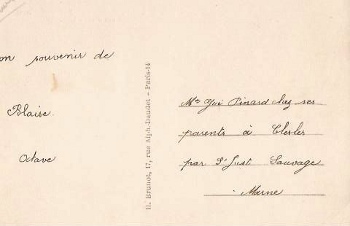 on souvenir de
Blaise
Octave
H. Brunot, 17, rue Alph-Daudet - Paris-14
Mr Gui Pinard chez ses
parents à Clesles
par St Just Sauvage
Marne